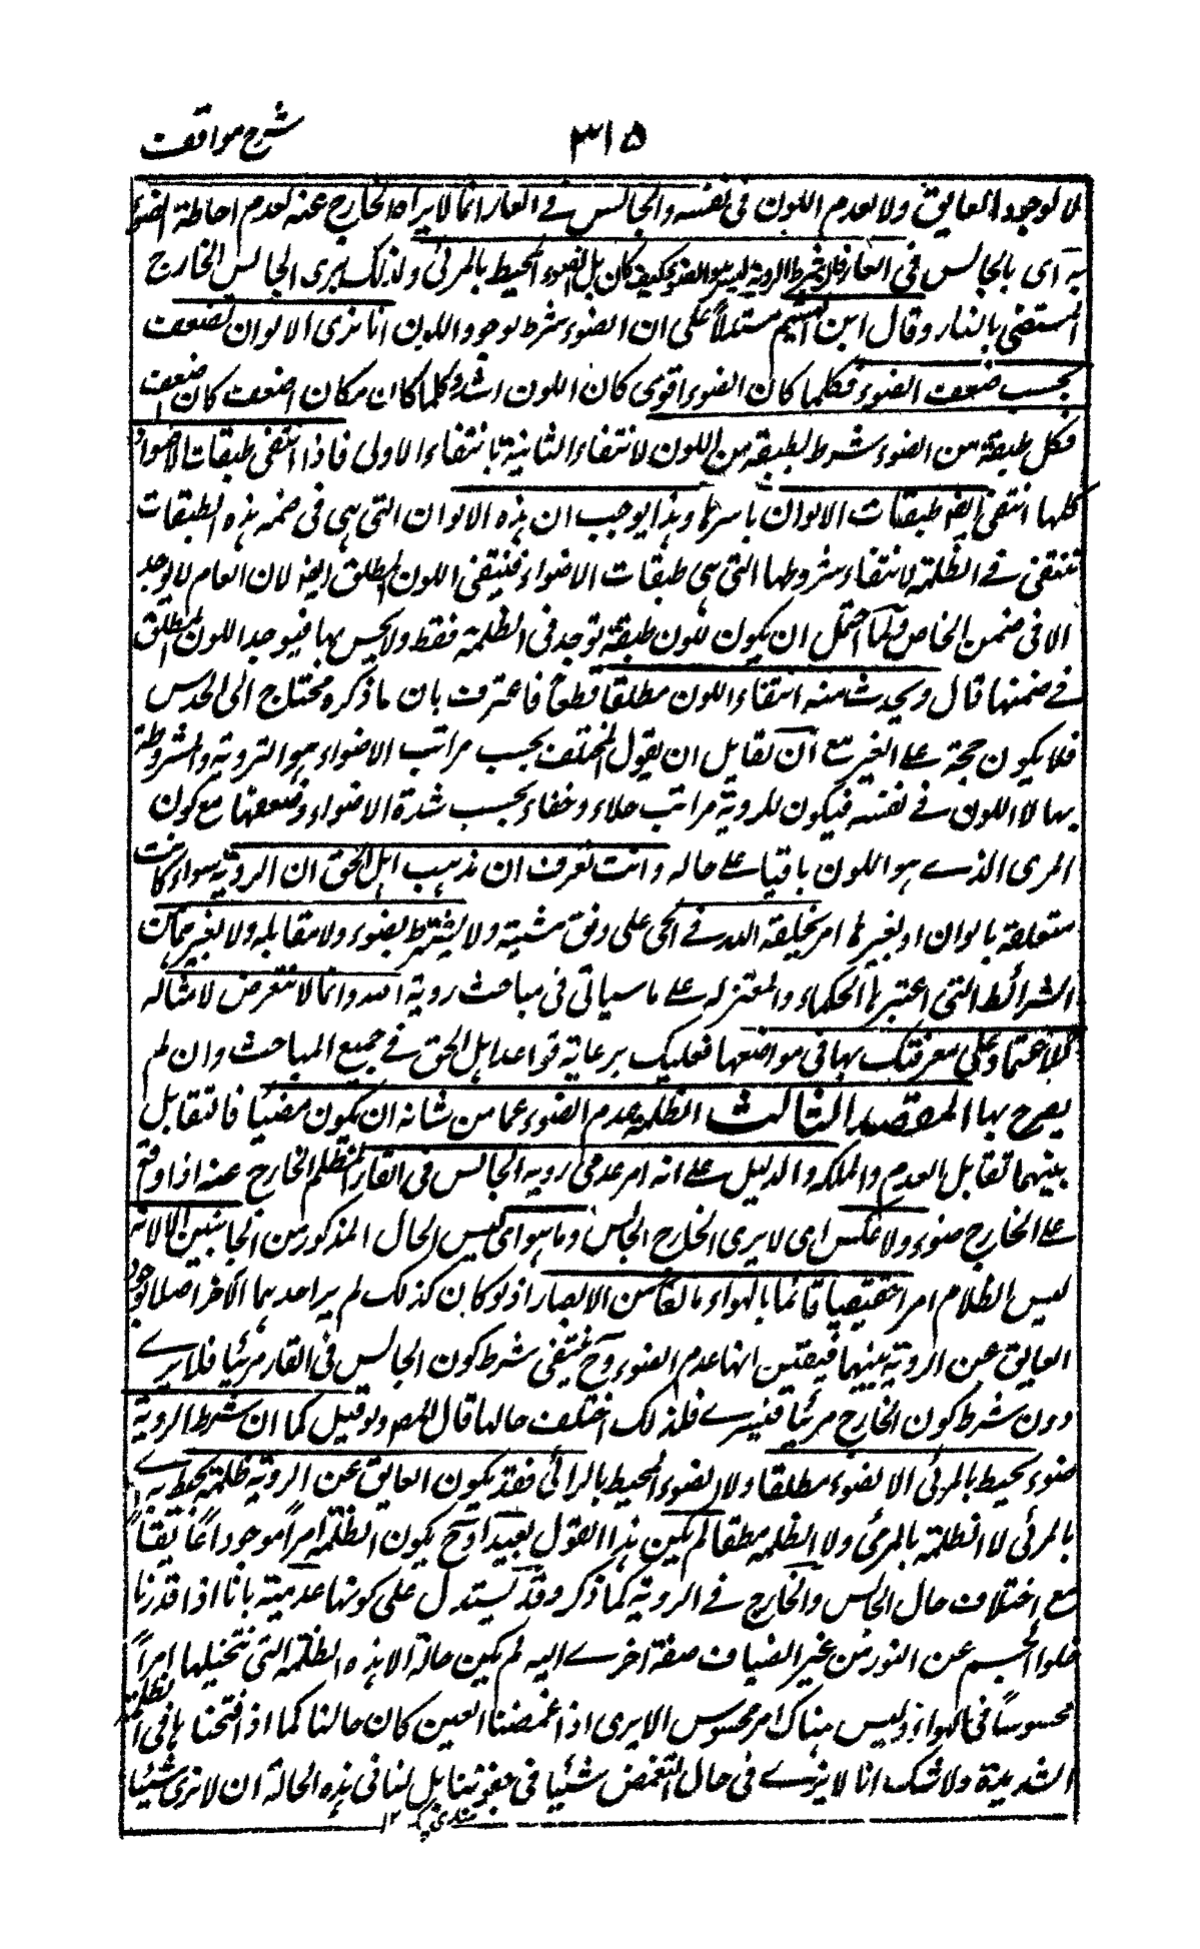 شرح مواقف
٣١٥
لا لوجود العايق ولا لعدم اللون فى نفسه والجالس فے الغار انما لا يراه الخارج عنه لعدم احاطة الضوء
به اى بالجالس فى الغار فان شرط الروية ليس هو الضوء كيف كان بل الضوء المحيط بالمرئى ولذلك يرى الجالس الخارج
المستضئ بالنار وقال ابن الهيثم مستدلاً على ان الضوء شرط لوجود اللون انا نرى الالوان تضعف
بحسب ضعف الضوء فكلما كان الضوء اقوى كان اللون اشد وكلما كان اضعف كان اضعف
فكل طبقة من الضوء شرط لطبقة من اللون لانتفاء الثانية بانتفاء الاولى فاذا انتفى طبقات الاضواء
كلها انتفى ايضا طبقات الالوان باسرها وهذا يوجب ان هذه الالوان التى هى فى ضمن هذه الطبقات
تنتفى فے الظلمة لانتفاء شروطها التى هى طبقات الاضواء فينتفى اللون المطلق ايضا لان العام لا يوجد
الا فى ضمن الخاص ولما احتمل ان يكون للون طبقة توجد فى الظلمة فقط ولا يحس بها فيوجد اللون المطلق
فے ضمنها قال ويحدث منه انتفاء اللون مطلقا قطعا فاعترف بان ما ذكره محتاج الى الحدس
فلا يكون حجة علے الغير مع ان لقايل ان يقول المختلف بحسب مراتب الاضواء هو الروية المشروطة
بها لا اللون فے نفسه فيكون للروية مراتب جلاء وخفاء بحسب شدة الاضواء وضعفها مع كون
المرئ الذے هو اللون باقيا علے حاله وانت تعرف ان مذهب اهل الحق ان الروية سواء كانت
متعلقة بالوان او بغيرها امر يخلقه الله فے الحى على وفق مشيته ولا يشترط بضوء ولا مقابلة ولا بغيرهما من
الشرائط التى اعتبرها الحكماء والمعتزله علے ما سياتى فى مباحث روية الله وانما لا نتعرض لامثاله
للاعتماد على معرفتك بها فى مواضعها فعليك برعاية قواعد اهل الحق فے جميع المباحث وان لم
يصرح بها المقصد الثالث الظلمة عدم الضوء عما من شانه ان يكون مضيئا فالتقابل
بينهما تقابل العدم والملكه والدليل علے انه امر عدمى روية الجالس فى الغار المظلم الخارج عنه اذا وقع
علے الخارج ضوء ولا عكس اى لا يرى الخارج الجالس وما هو اى ليس الحال المذكور من الجانبين الا لانه
ليس الظلام امرا حقيقيا قائما بالهواء مانعا من الابصار اذ لو كان كذلك لم ير احدهما الآخر اصلا لوجود
العايق عن الروية بينهما فيتعين انها عدم الضوء وح ينتفى شرط كون الجالس فى الغار مرئيا فلا يرے
دون شرط كون الخارج مرئيا فيرے فلذلك اختلف حالها قال المصر ولو قيل كما ان شرط الروية
ضوء يحيط بالمرئى لا الضوء مطلقا ولا الضوء المحيط بالرائى فقد يكون العايق عن الروية ظلمة يحيط
بالمرئى لا الظلمة بالمرئى ولا الظلمة مطلقا لم يكن هذا القول بعيدا وح يكون الظلمة امراً موجوداً عايقاً
مع اختلاف حال الجالس والخارج فے الروية كما ذكر وقد يستدل على كونها عدمية بانا اذا قدرنا
خلو الجسم عن النور من غير انضياف صفة اخرے اليه لم يكن حاله الا هذه الظلمة التى نتخيلها امراً
محسوساً فى الهواء وليس هناك امر محسوس الا يرى اذا غمضنا العين كان حالنا كما اذا فتحناها فى الظلمة
الشديدة ولا شك انا لا نرے فى حال التغمض شيئا فى جفوننا بل لنا فى هذه الحالة ان لا نرى شيئا